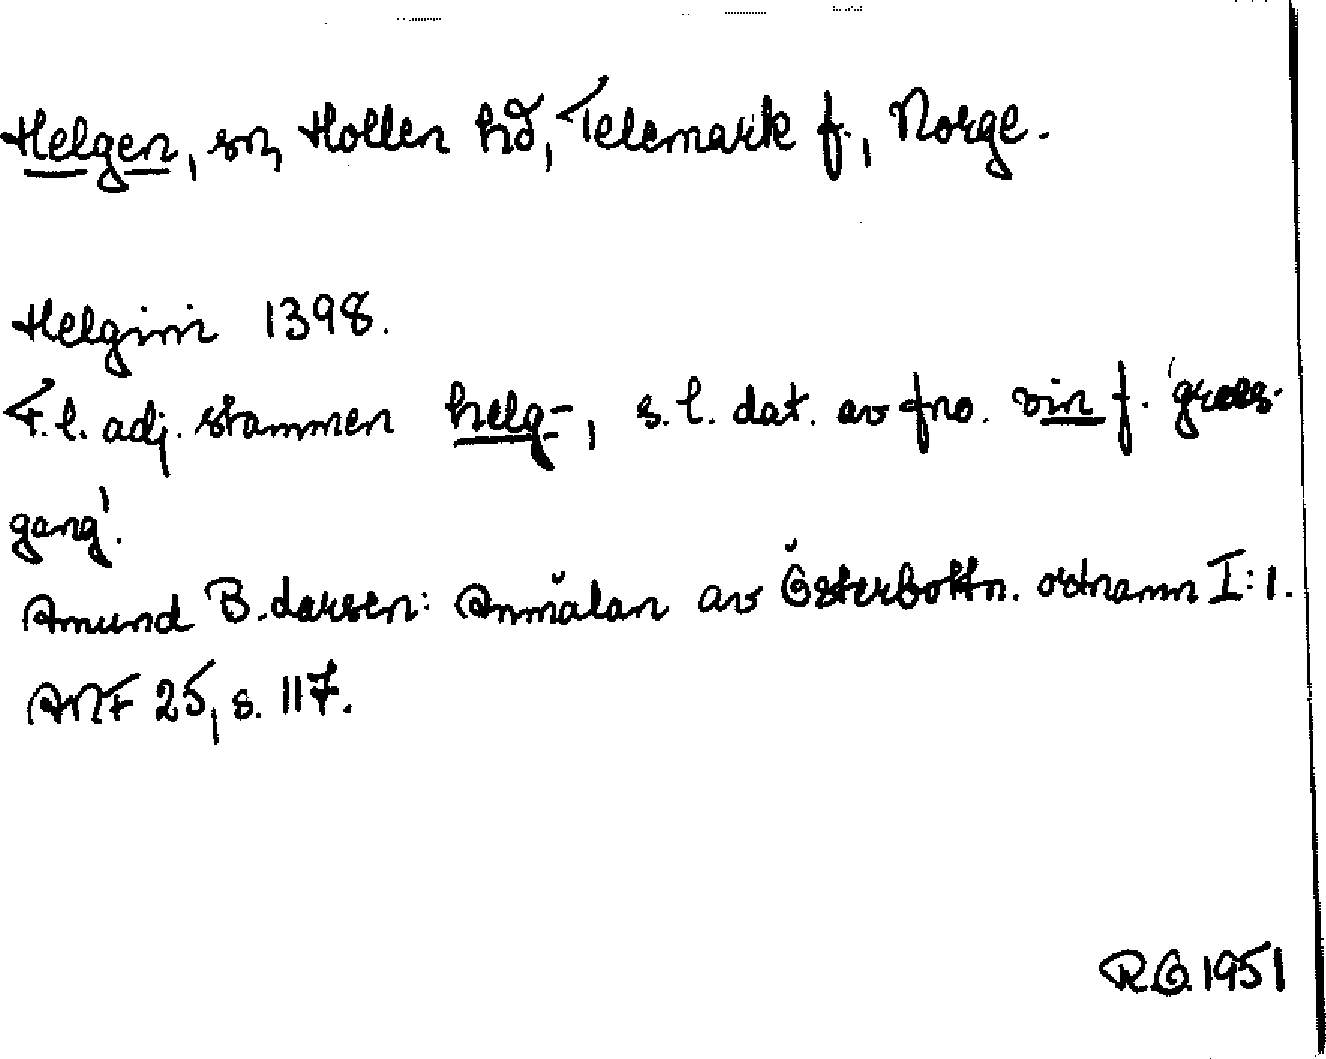 Helgen, sn, Hollen hd, Telemark f., Norge.
Helgini 1398.
F.l. adj. stammen helg-, s.l. dat. av fno. vin f. 'gräs-
gång'.
Amund B. Larsen: Anmälan av Österbottn. ortnamn I:1.
ANF 25, s. 117.
R.G. 1951